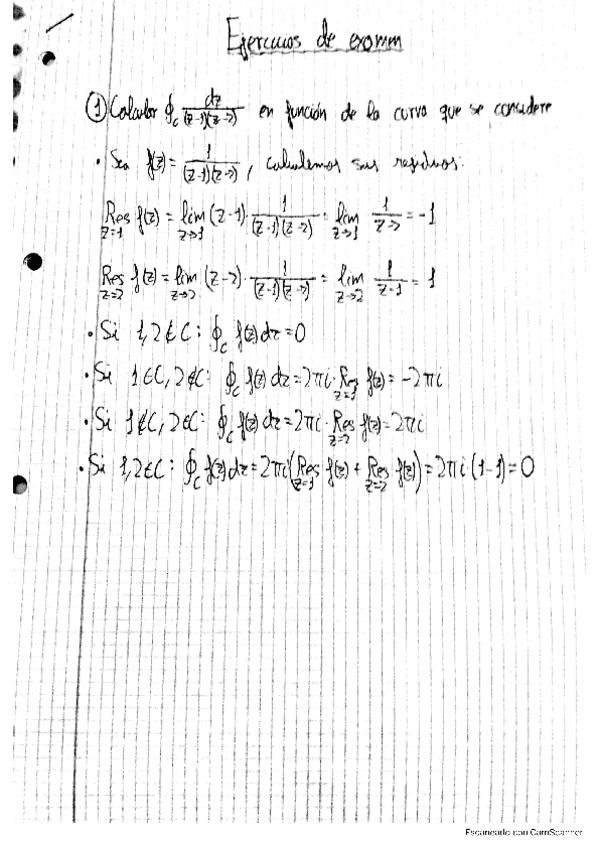 Ejercicios de examen
① Calcular ∮_C dz/((z-1)(z-2)) en función de la curva que se considere
• Sea f(z) = 1/((z-1)(z-2)), calculemos sus residuos.
Res_{z=1} f(z) = lím_{z→1} (z-1) · 1/((z-1)(z-2)) = lím_{z→1} 1/(z-2) = -1
Res_{z=2} f(z) = lím_{z→2} (z-2) · 1/((z-1)(z-2)) = lím_{z→2} 1/(z-1) = 1
• Si 1,2 ∉ C: ∮_C f(z) dz = 0
• Si 1 ∈ C, 2 ∉ C: ∮_C f(z) dz = 2πi · Res_{z=1} f(z) = -2πi
• Si 1 ∉ C, 2 ∈ C: ∮_C f(z) dz = 2πi · Res_{z=2} f(z) = 2πi
• Si 1,2 ∈ C: ∮_C f(z) dz = 2πi (Res_{z=1} f(z) + Res_{z=2} f(z)) = 2πi (1-1) = 0
Escaneado con CamScanner